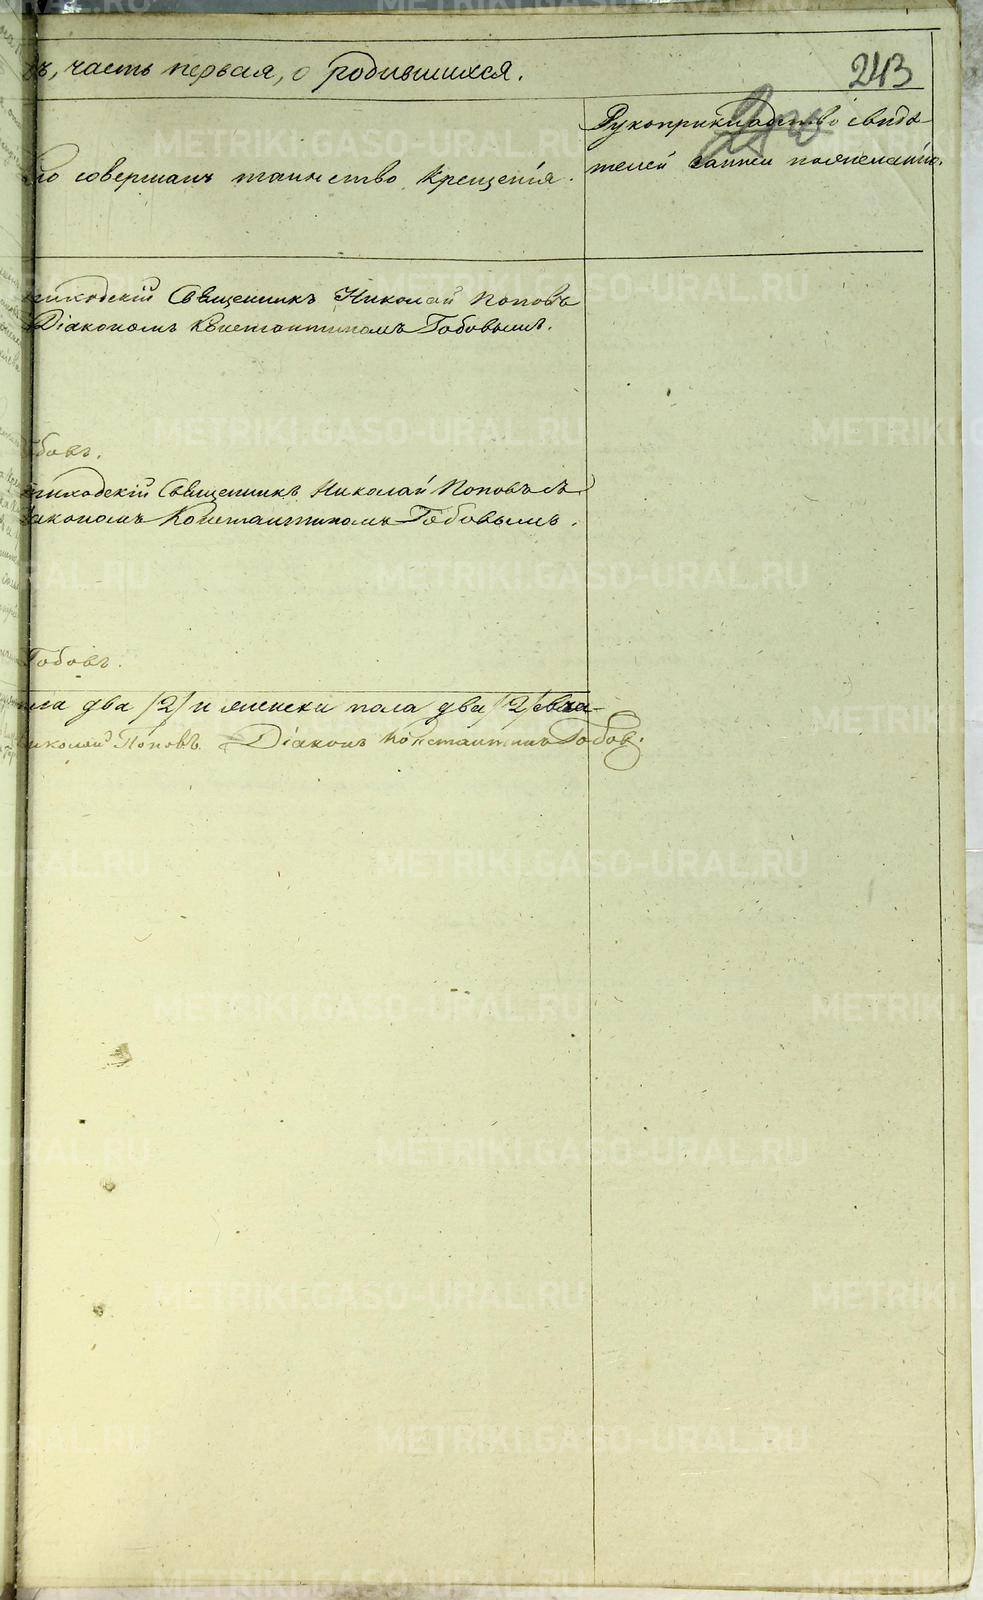 ъ, часть первая, о родившихся.
243
Кто совершалъ таинство крещенія.
Рукоприкладство свидѣ-
телей записи по желанію.
приходскій Священникъ Николай Поповъ
Діакономъ Константиномъ Гобовымъ.
Гобовъ.
приходскій Священникъ Николай Поповъ съ
Діакономъ Константиномъ Гобовымъ.
Гобовъ.
пола два /2/ и женска пола два /2/
Николай Поповъ. Діаконъ Константинъ Гобов.
METRIKI.GASO-URAL.RU